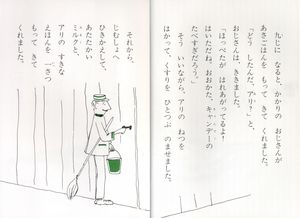 九じに なると かかりの おじさんが
あさごはんを もって きて くれました。
「どう したんだ、アリ?」と、
おじさんは、ききました。
「ほっぺたが はれあがってるよ!
はいただね、おおかた。キャンデーの
たべすぎだろう。」
そう いいながら、アリの ねつを
はかって、くすりを ひとつぶ のませました。
それから、
じむしょへ
ひきかえして、
あたたかい
ミルクと、
アリの すきな
えほんを 一さつ
もって きて
くれました。